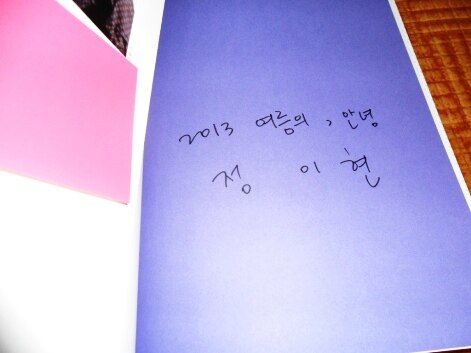 2013 여름의, 안녕
정 이현